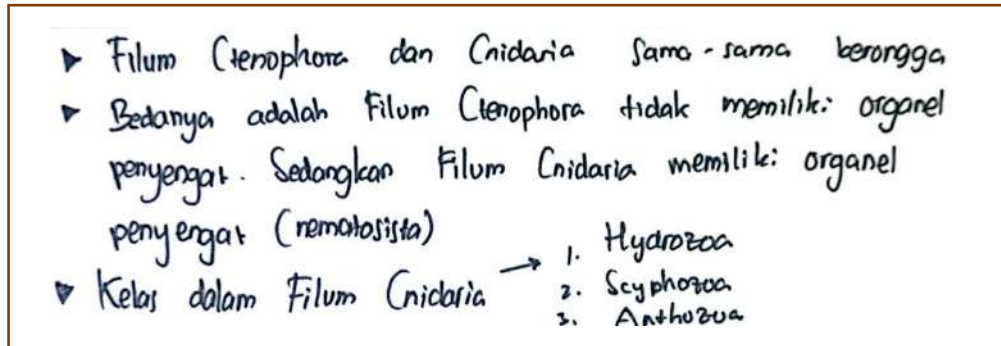 ▶ Filum Ctenophora dan Cnidaria sama-sama berongga
▶ Bedanya adalah Filum Ctenophora tidak memiliki organel
penyengat. Sedangkan Filum Cnidaria memiliki organel
penyengat (nematosista)
▶ Kelas dalam Filum Cnidaria → 1. Hydrozoa
2. Scyphozoa
3. Anthozoa